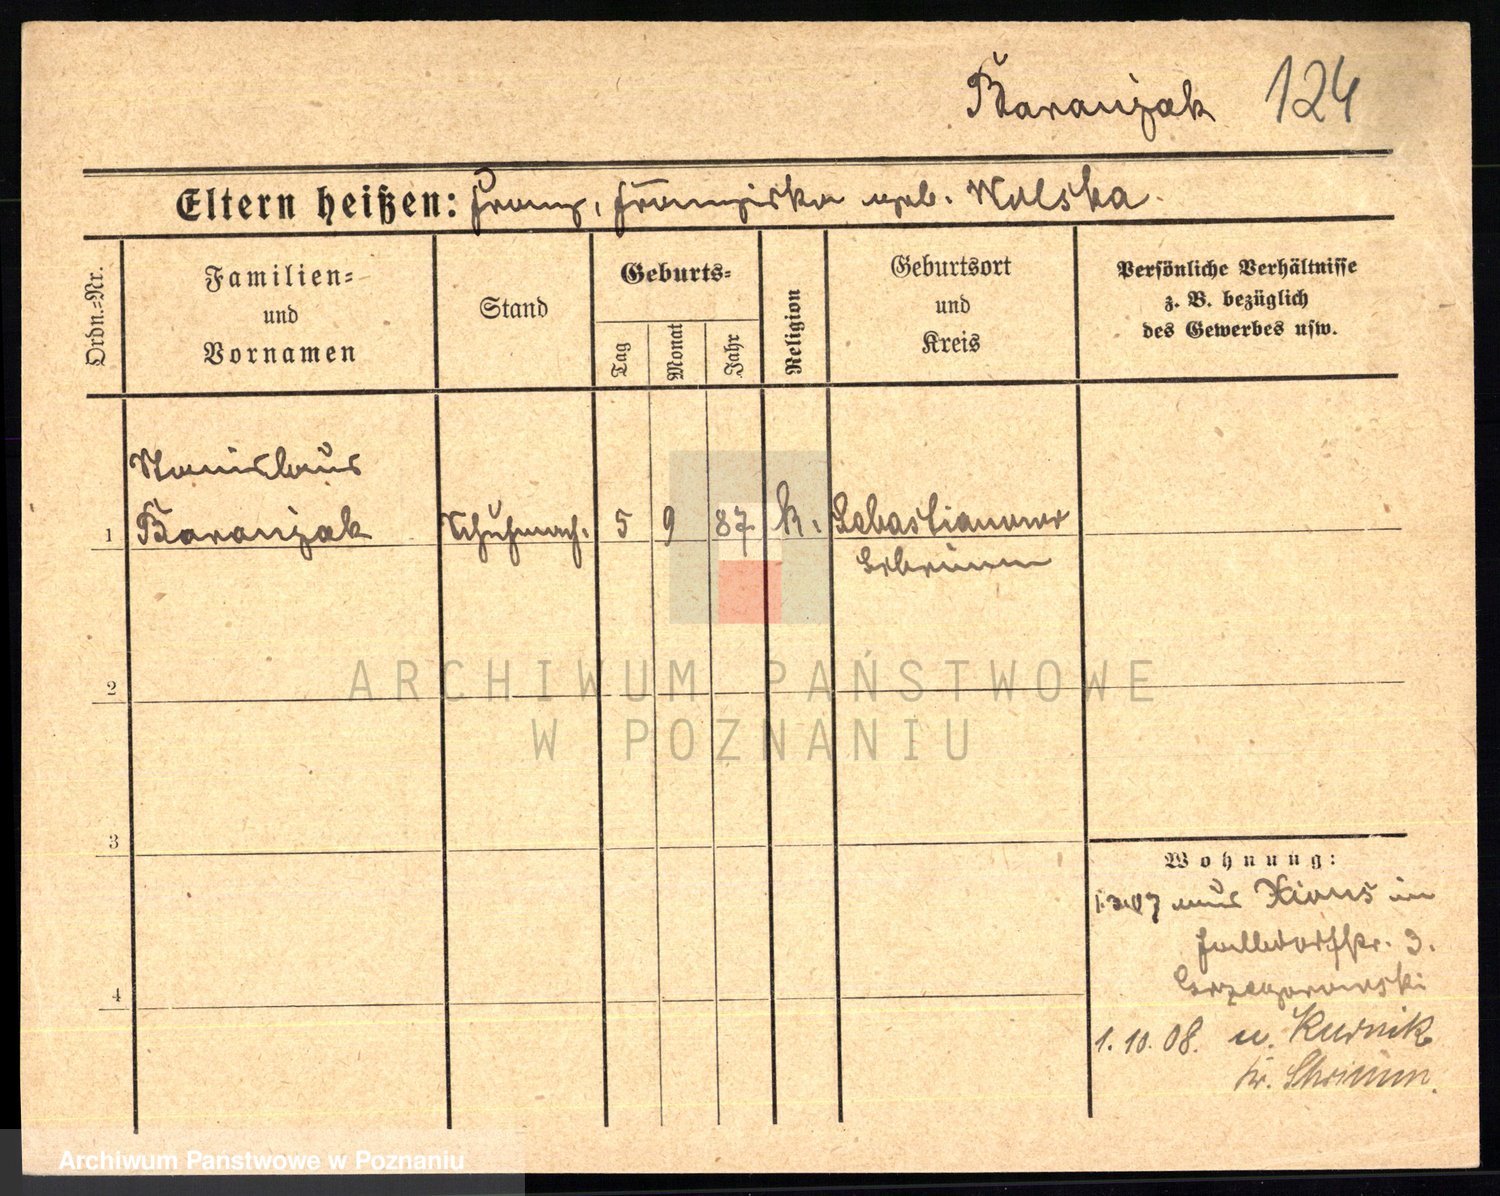 Baranjak 124
Eltern heißen: Franz, Franziska geb. Walska.
Ordn.=Nr.
Familien=
und
Vornamen
Stand
Geburts=
Tag
Monat
Jahr
Religion
Geburtsort
und
Kreis
Persönliche Verhältnisse
z. B. bezüglich
des Gewerbes usw.
Stanislaus
1 Baranjak Schuhmach. 5 9 87 k. Sebastianowo
Schrimm
2
3
4
Wohnung:
aus Xions in
Halldorfstr. 3.
Grzegorowski
1. 10. 08. n. Kurnik
Kr. Schrimm.
ARCHIWUM PAŃSTWOWE
W POZNANIU
Archiwum Państwowe w Poznaniu